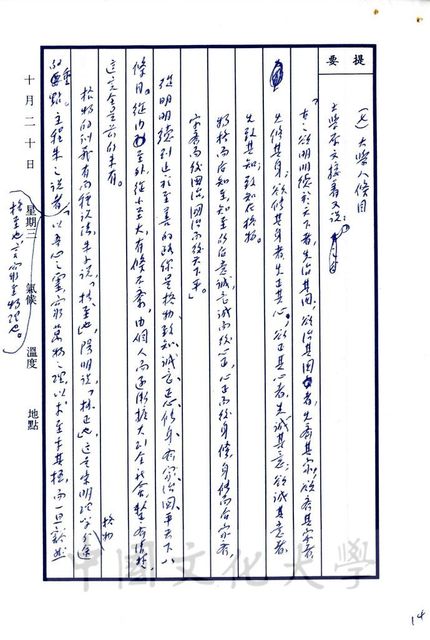 14
提要
(七)大學八條目
大學原文接着又說:
「古之欲明明德于天下者,先治其國,欲治其國者,先齊其家,欲齊其家者
先修其身,欲修其身者,先正其心,欲正其心者,先誠其意,欲誠其意者
先致其知,致知在格物。
物格而后知至,知至而后意誠,意誠而后心正,心正而后身修,身修而后家齊,
家齊而后國治,國治而后天下平。」
從明明德到止於至善的路線是格物致知誠意正心修身齊家治國平天下八
條目。從內至外,從小至大,有條不紊,由個人而逐漸擴大到全社會,
這完全是
格物的訓義有兩種說法,朱子說「格,至也,陽明說,「格,正也,這是朱明理學分途
格物
主程朱之說者「以吾心之靈,窮萬物之理,以求至乎其極,而一旦豁然
格至也,言窮至物理也。
十月二十日 星期三 氣候 溫度 地點
中國文化大學
14